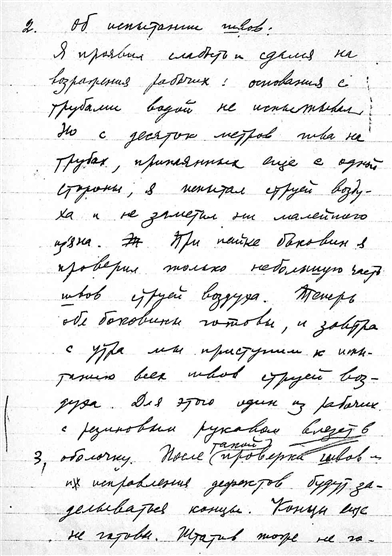 2. Об испытании швов.
Я проявил слабость и сдался на
возражения рабочих: основания с
трубами водой не испытывал.
Но с десяток метров шва на
трубах, припаянных еще с одной
стороны, я испытал струей возду-
ха и не заметил ни малейшего
изъяна. При пайке боковин я
проверил только небольшую часть
швов струей воздуха. Теперь
обе боковины готовы, и завтра
с утра мы приступим к испы-
танию всех швов струей воз-
духа. Для этого один из рабочих
с резиновым рукавом влезет в
3, оболочку. После такой проверки швов и
их исправления дефектов будут за-
делываться концы. Концы еще
не готовы. Штатив тоже не го-